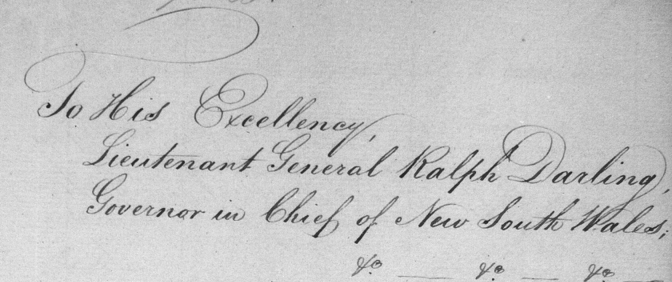 To His Excellency,
Lieutenant General Ralph Darling
Governor in Chief of New South Wales;
&c — &c — &c —